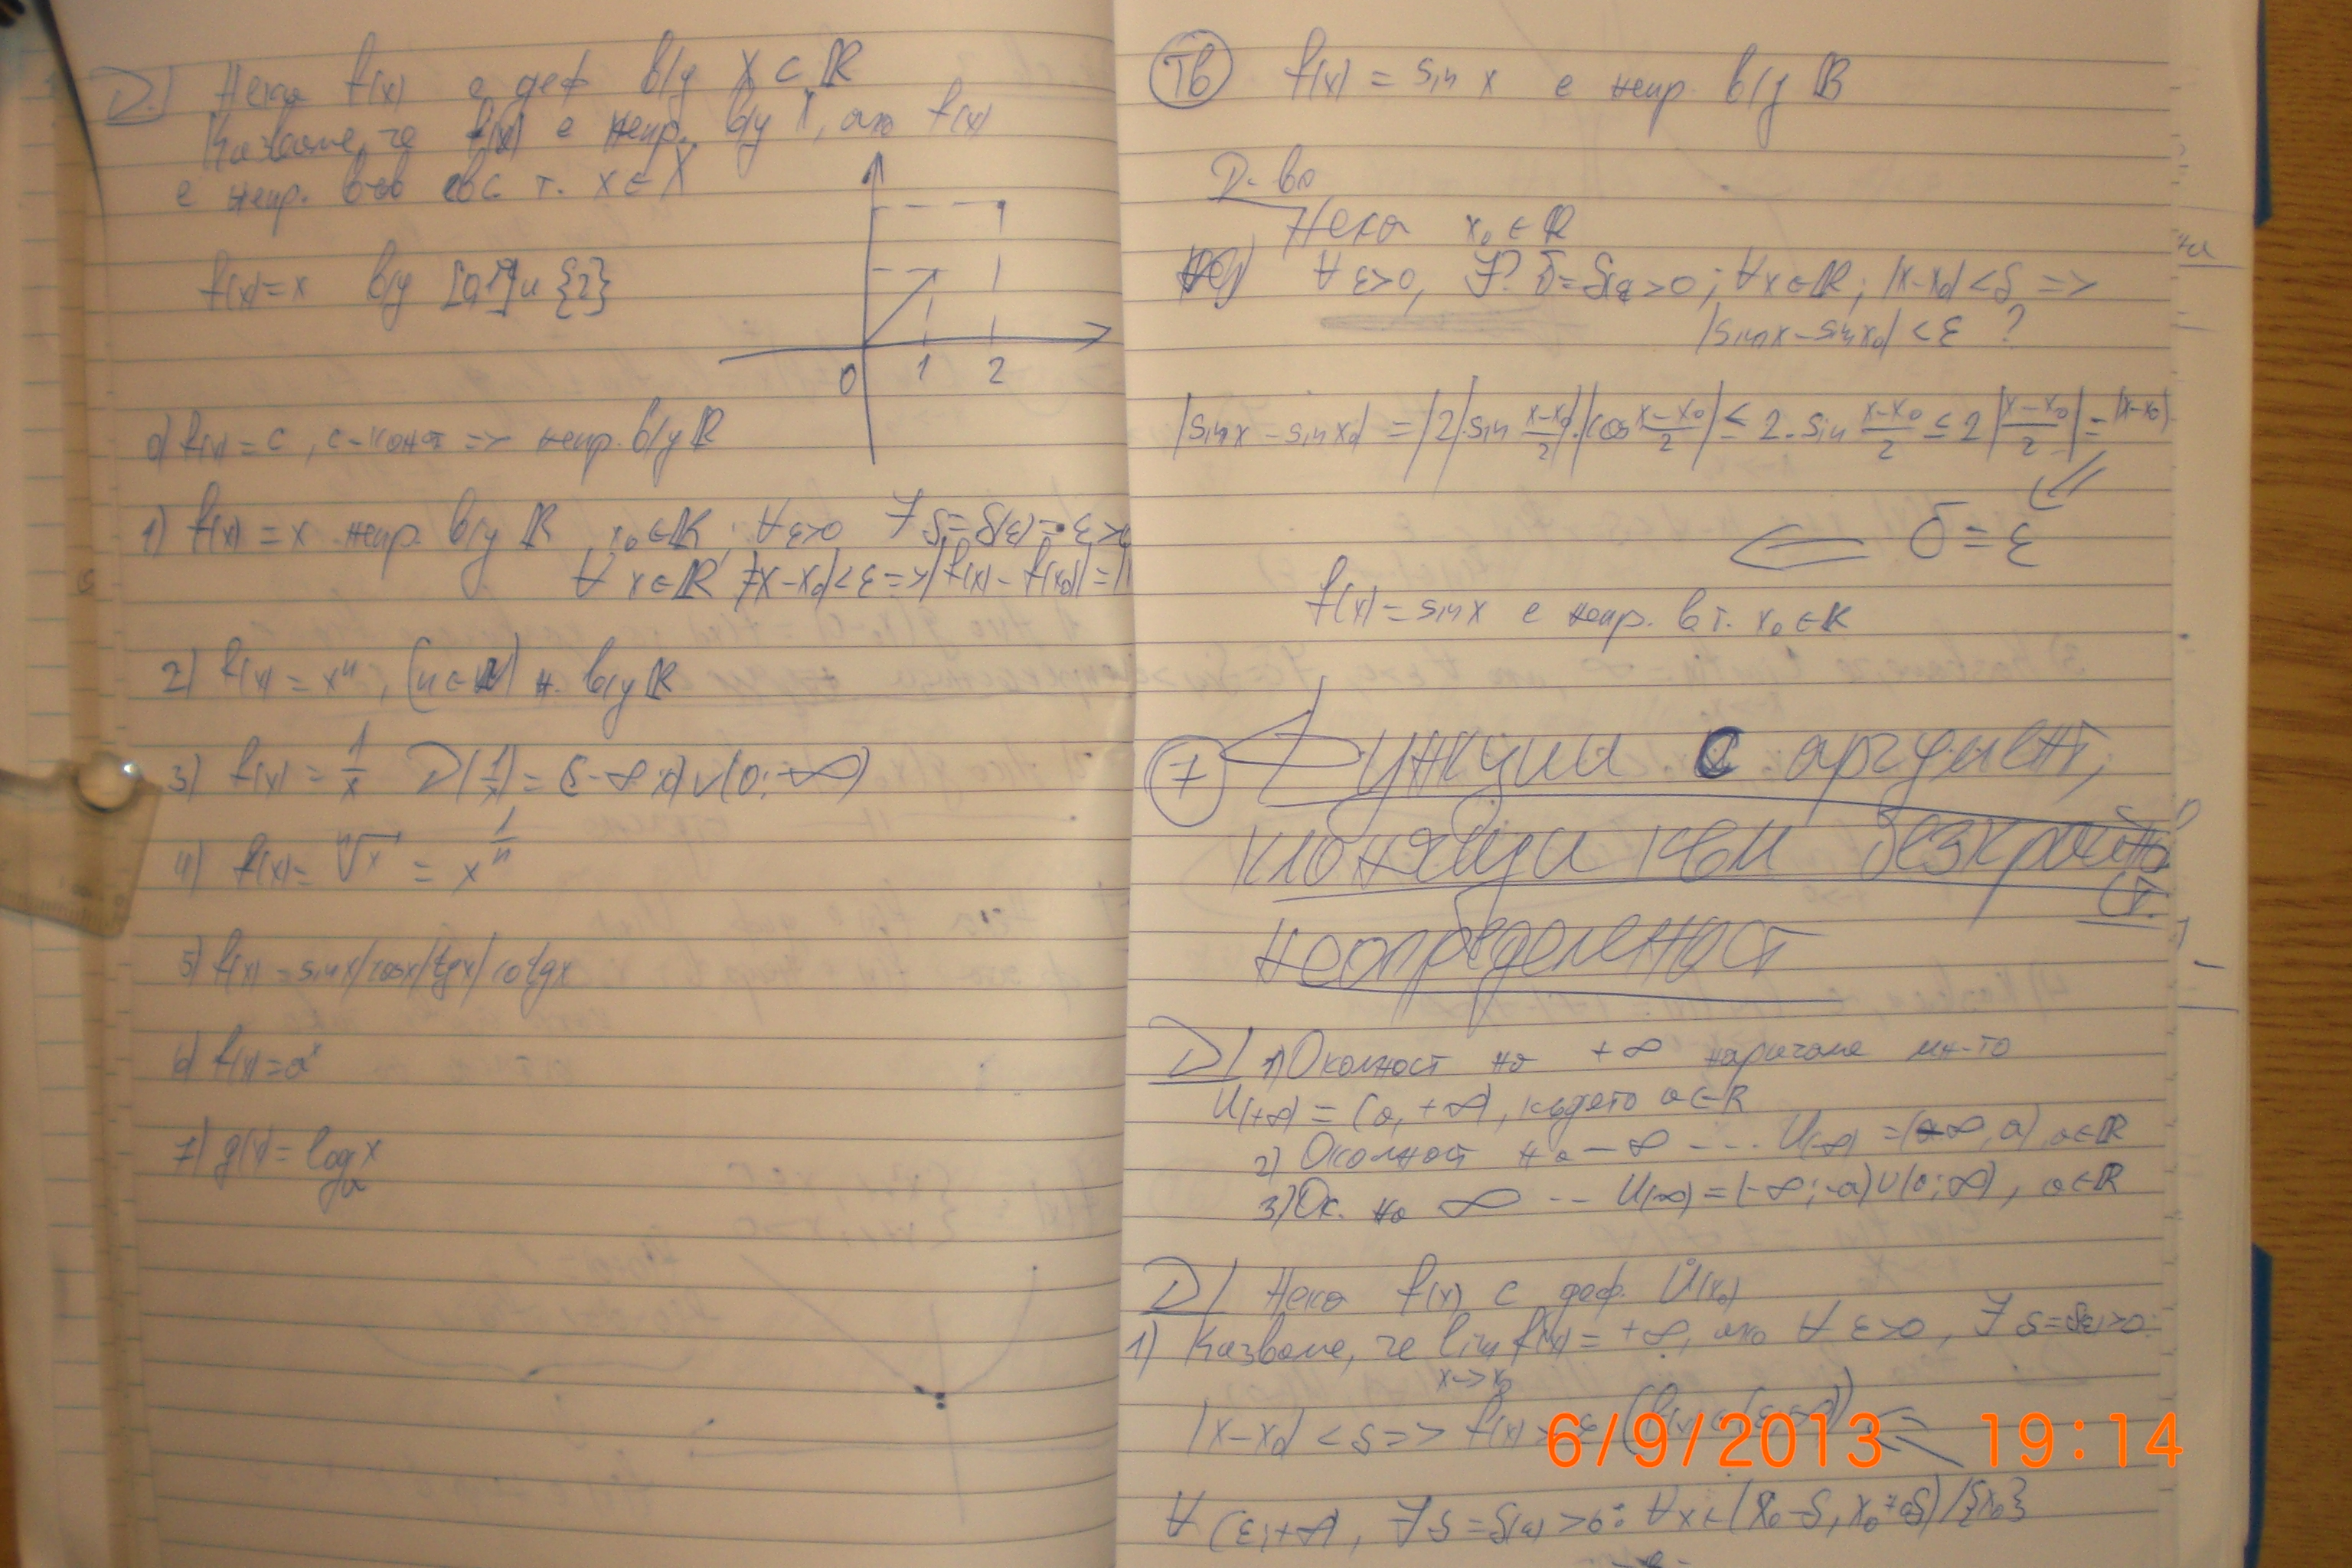 D/ Нека f(x) е деф в/у X ⊂ ℝ
Казваме, че f(x) е непр. в/у X, ако f(x)
е непр. във вс т. x ∈ X
f(x) = x в/у [0,1] ∪ {2}
0 1 2
0) f(x) = c, c - конст => непр. в/у ℝ
1) f(x) = x непр. в/у ℝ x₀ ∈ ℝ; ∀ ε>0 ∃ δ = δ(ε) = ε > 0
∀ x ∈ ℝ |x - x₀| < ε => |f(x) - f(x₀)| = |
2) f(x) = xⁿ, (n ∈ ℕ) н. в/у ℝ
3) f(x) = 1/x D(1/x) = (-∞; 0) ∪ (0; +∞)
4) f(x) = ⁿ√x = x^(1/n)
5) f(x) = sin x / cos x / tg x / cotg x
6) f(x) = aˣ
7) g(x) = logₐ x
Тв f(x) = sin x е непр. в/у ℝ
Д-во
Нека x₀ ∈ ℝ
∀ ε>0, ∃? δ = δ(ε) > 0; ∀x ∈ ℝ; |x - x₀| < δ =>
|sin x - sin x₀| < ε ?
|sin x - sin x₀| = |2| |sin (x-x₀)/2| . |cos (x-x₀)/2| ≤ 2 . sin (x-x₀)/2 ≤ 2 |(x-x₀)/2| = |x-x₀|
⇐ δ = ε ⇙
f(x) = sin x е непр. в т. x₀ ∈ ℝ
7 Функции с аргумент,
клонящи към безкрайна
ст.
неопределеност
D/ 1) Околност на +∞ наричаме мн-то
U(+∞) = (a, +∞), където a ∈ ℝ
2) Околност на -∞ ... U(-∞) = (-∞, a), a ∈ ℝ
3) Ок. на ∞ ... U(∞) = (-∞; -a) ∪ (a; ∞), a ∈ ℝ
D/ Нека f(x) е деф. U̇(x₀)
1) Казваме, че lim f(x) = +∞, ако ∀ ε>0, ∃ δ = δ(ε) > 0:
x -> x₀
|x - x₀| < δ => f(x) > ε (f(x) ∈ (ε, +∞)) <=
∀ (ε; +∞), ∃ δ = δ(ε) > 0: ∀ x ∈ (x₀ - δ, x₀ + δ) / {x₀}
6/9/2013 19:14